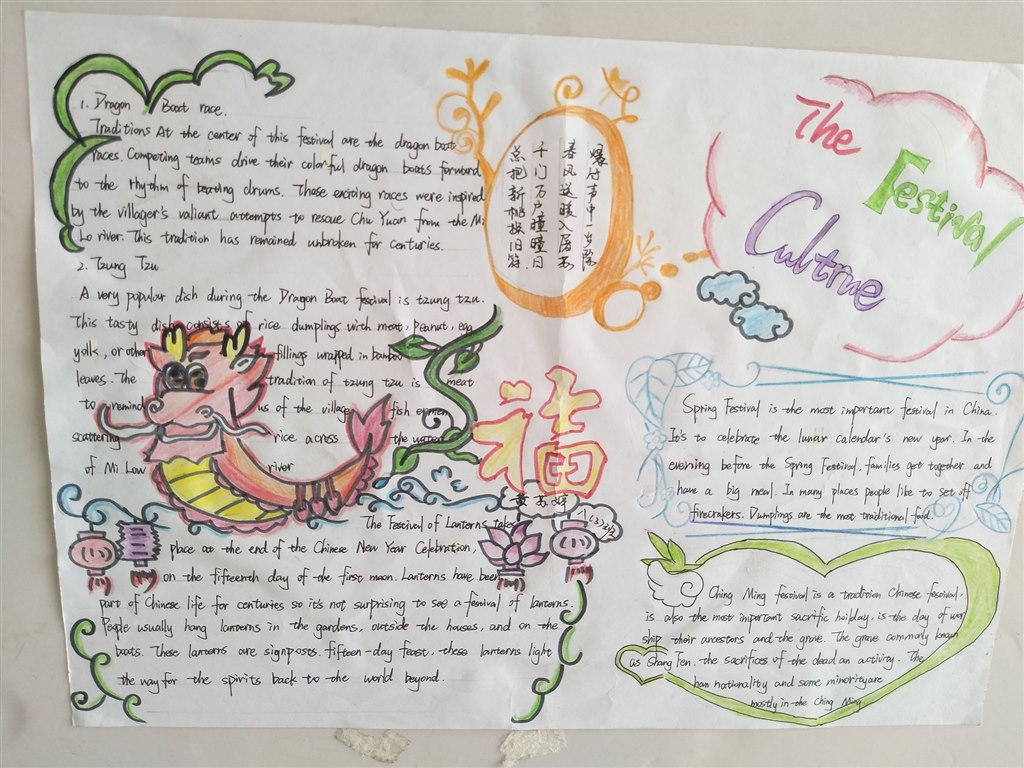 The
Festival
Cultrue
1. Dragon Boat race.
Traditions At the center of this festival are the dragon boat
races. Competing teams drive their colorful dragon boats forward
to the rhythm of beating drums. These exciting races were inspired
by the villager's valiant attempts to rescue Chu Yuan from the Mi
Lo river. This tradition has remained unbroken for centuries.
2. Tzung Tzu
A very popular dish during the Dragon Boat festival is tzung tzu.
This tasty dish consists of rice dumplings with meat, peanut, egg
yolk, or other fillings wrapped in bamboo
leaves. The tradition of tzung tzu is meat
to remind us of the village fish ermen
scattering rice across the water
of Mi Low river
爆竹声中一岁除
春风送暖入屠苏
千门万户曈曈日
总把新桃换旧符.
福
The Festival of Lanterns takes
place at the end of the Chinese New Year Celebration,
on the fifteenth day of the first moon. Lanterns have been
part of Chinese life for centuries so it's not surprising to see a festival of lanterns.
People usually hang lanterns in the gardens, outside the houses, and on the
boats. These lanterns are signposts. fifteen-day feast, these lanterns light
the way for the spirits back to the world beyond.
Spring Festival is the most important festival in China.
It's to celebrate the lunar calendar's new year. In the
evening before the Spring Festival, families get together and
have a big meal. In many places people like to set off
firecrakers. Dumplings are the most traditional food.
Ching Ming fesioval is a tradition Chinese fesioval.
is also the most important sacrific hoilday, is the day of wor
ship their ancestors and the grave. The grave commonly known
as Shang Fen. the sacrifices of the dead an activiry. The
han nationality and some minorityare
mostly in the Ching Ming